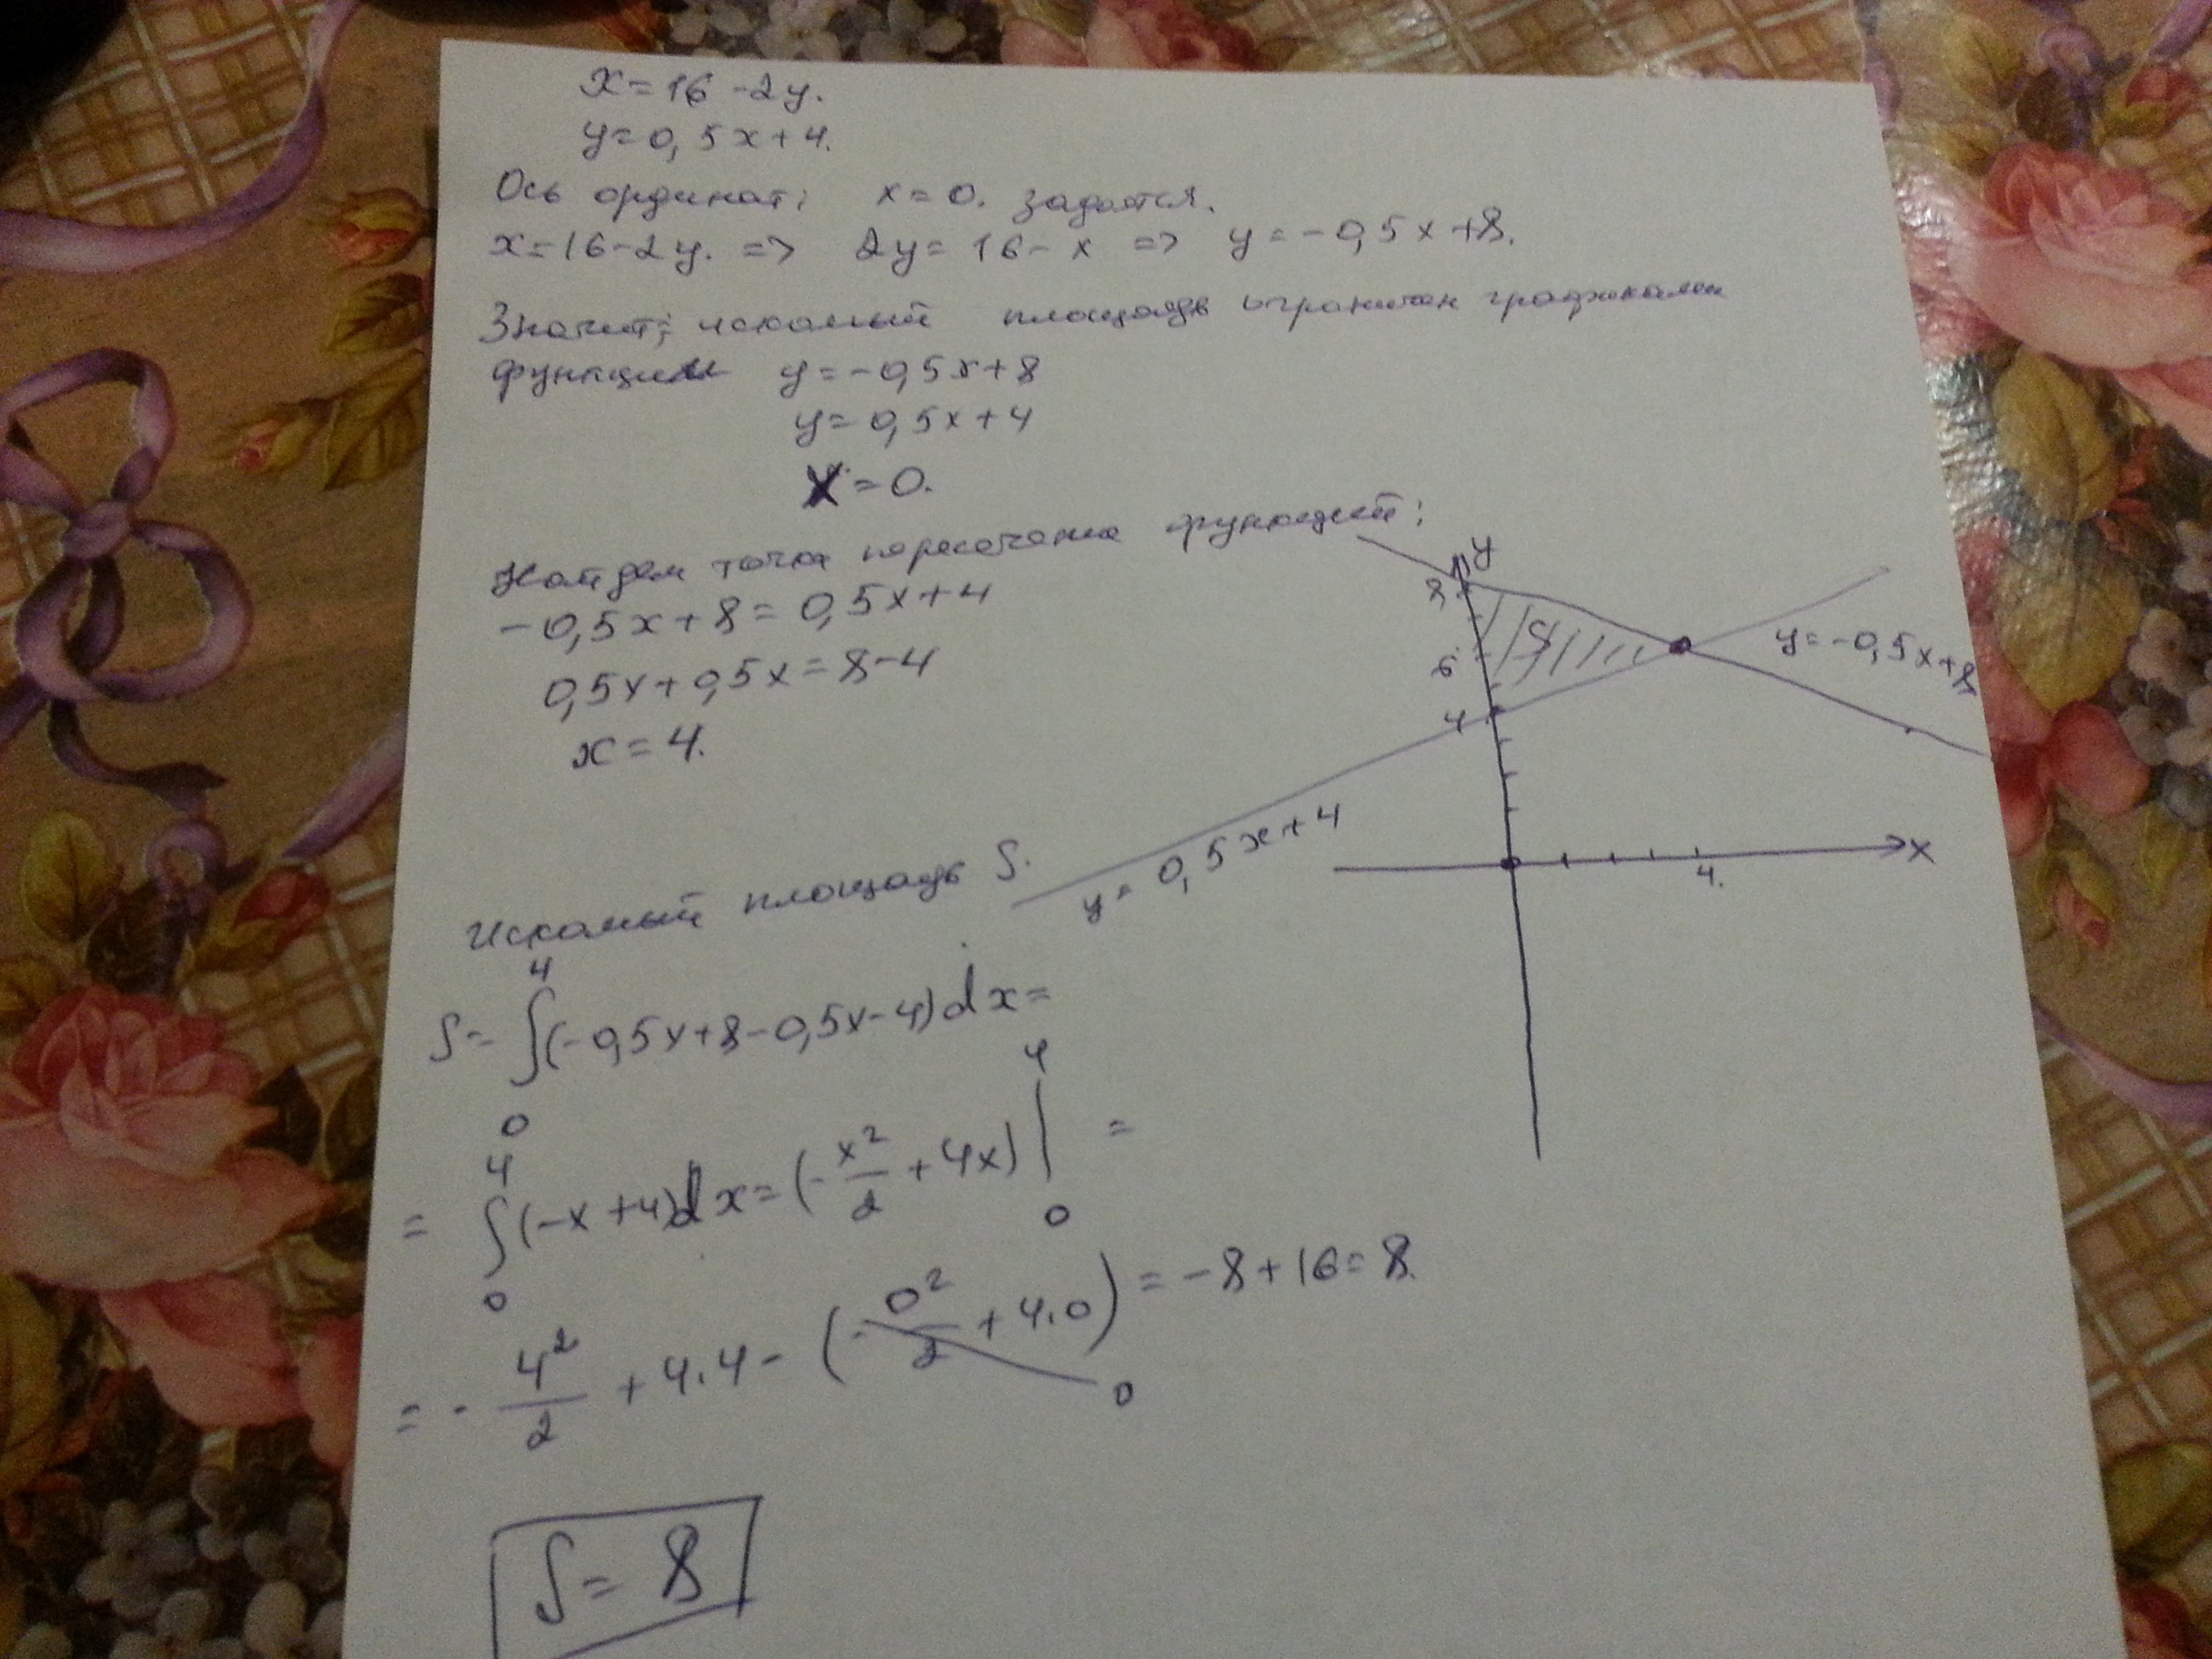 x=16-2y.
y=0,5x+4.
Ось ординат: x=0. задается.
x=16-2y. => 2y=16-x => y=-0,5x+8.
Значит; искомый площадь ограничен графиками
функции y=-0,5x+8
y=0,5x+4
x=0.
Найдем точки пересечения функций:
-0,5x+8=0,5x+4
0,5x+0,5x=8-4
x=4.
y
8
6
4
S
y=-0,5x+8
y=0,5x+4
4.
x
Искомый площадь S.
S=∫₀⁴(-0,5x+8-0,5x-4)dx=
=∫₀⁴(-x+4)dx=(-x²/2+4x)|₀⁴=
=-4²/2+4.4-(-0²/2+4.0)=-8+16=8.
0
S=8